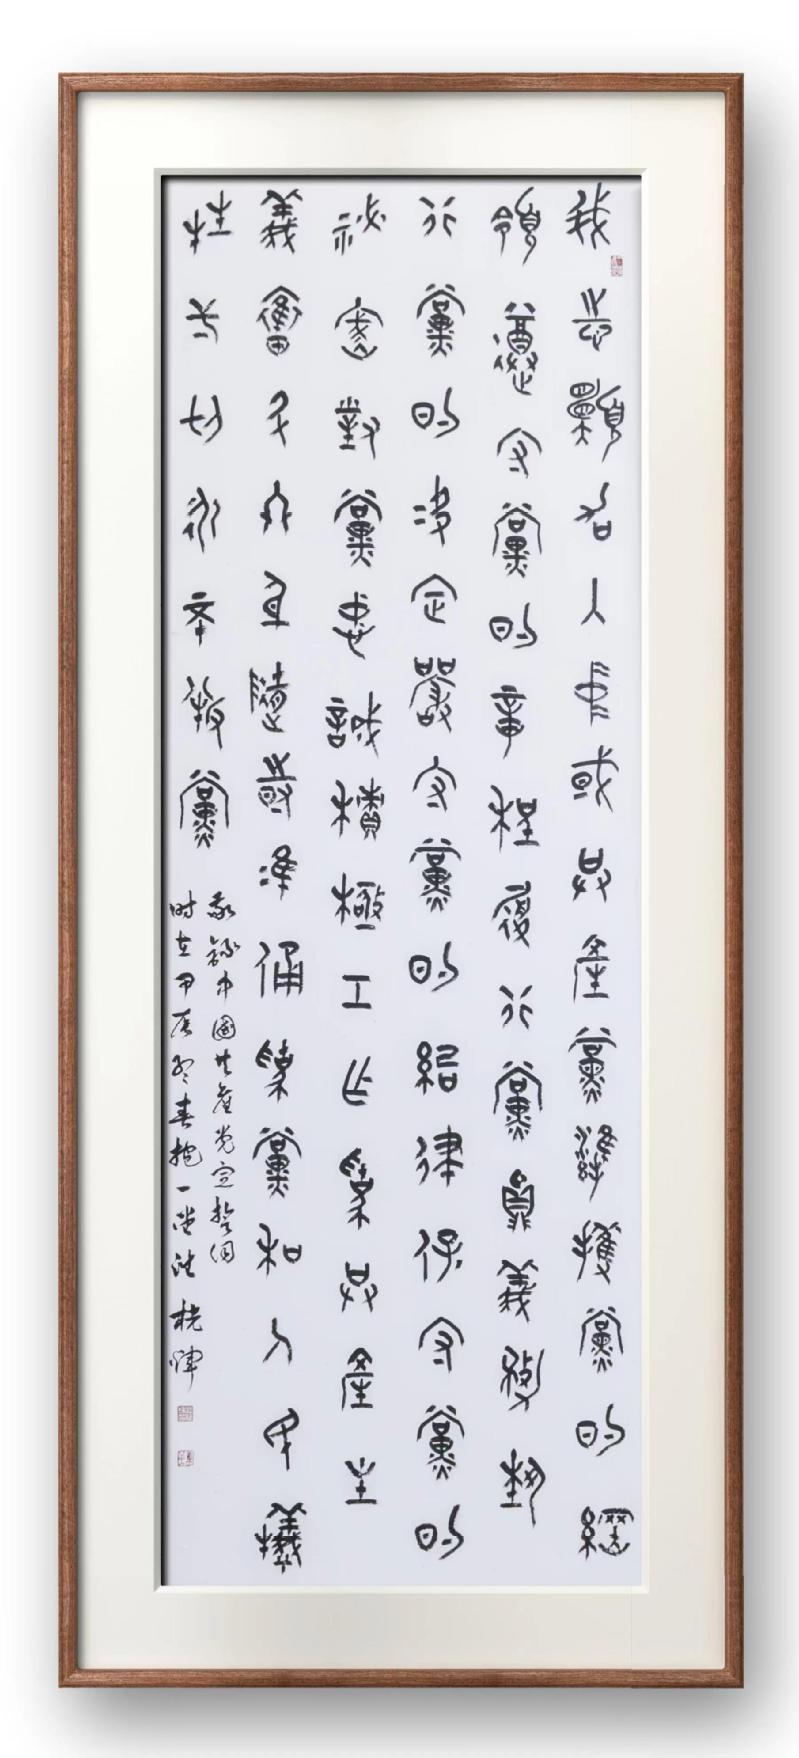 我志願加入中國共產黨擁護黨的綱
領遵守黨的章程履行黨員義務執
行黨的決定嚴守黨的紀律保守黨的
祕密對黨忠誠積極工作為共產主
義奮鬥終身隨時準備為黨和人民犧
牲一切永不叛黨
敬錄中國共產党宣誓詞
时在甲辰春抱一